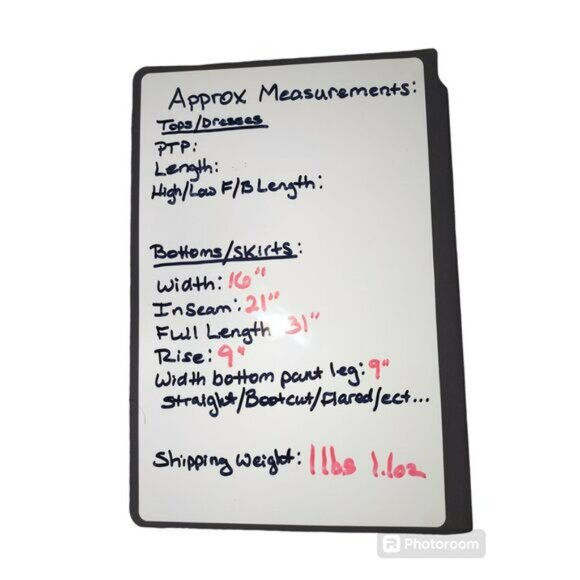 Approx Measurements:
Tops/Dresses
PTP:
Length:
High/Low F/B Length:
Bottoms/Skirts:
Width: 16"
Inseam: 21"
Full Length 31"
Rise: 9"
Width bottom pant leg: 9"
Straight/Bootcut/Flared/ect...
Shipping Weight: 1lbs 1.1oz
Photoroom